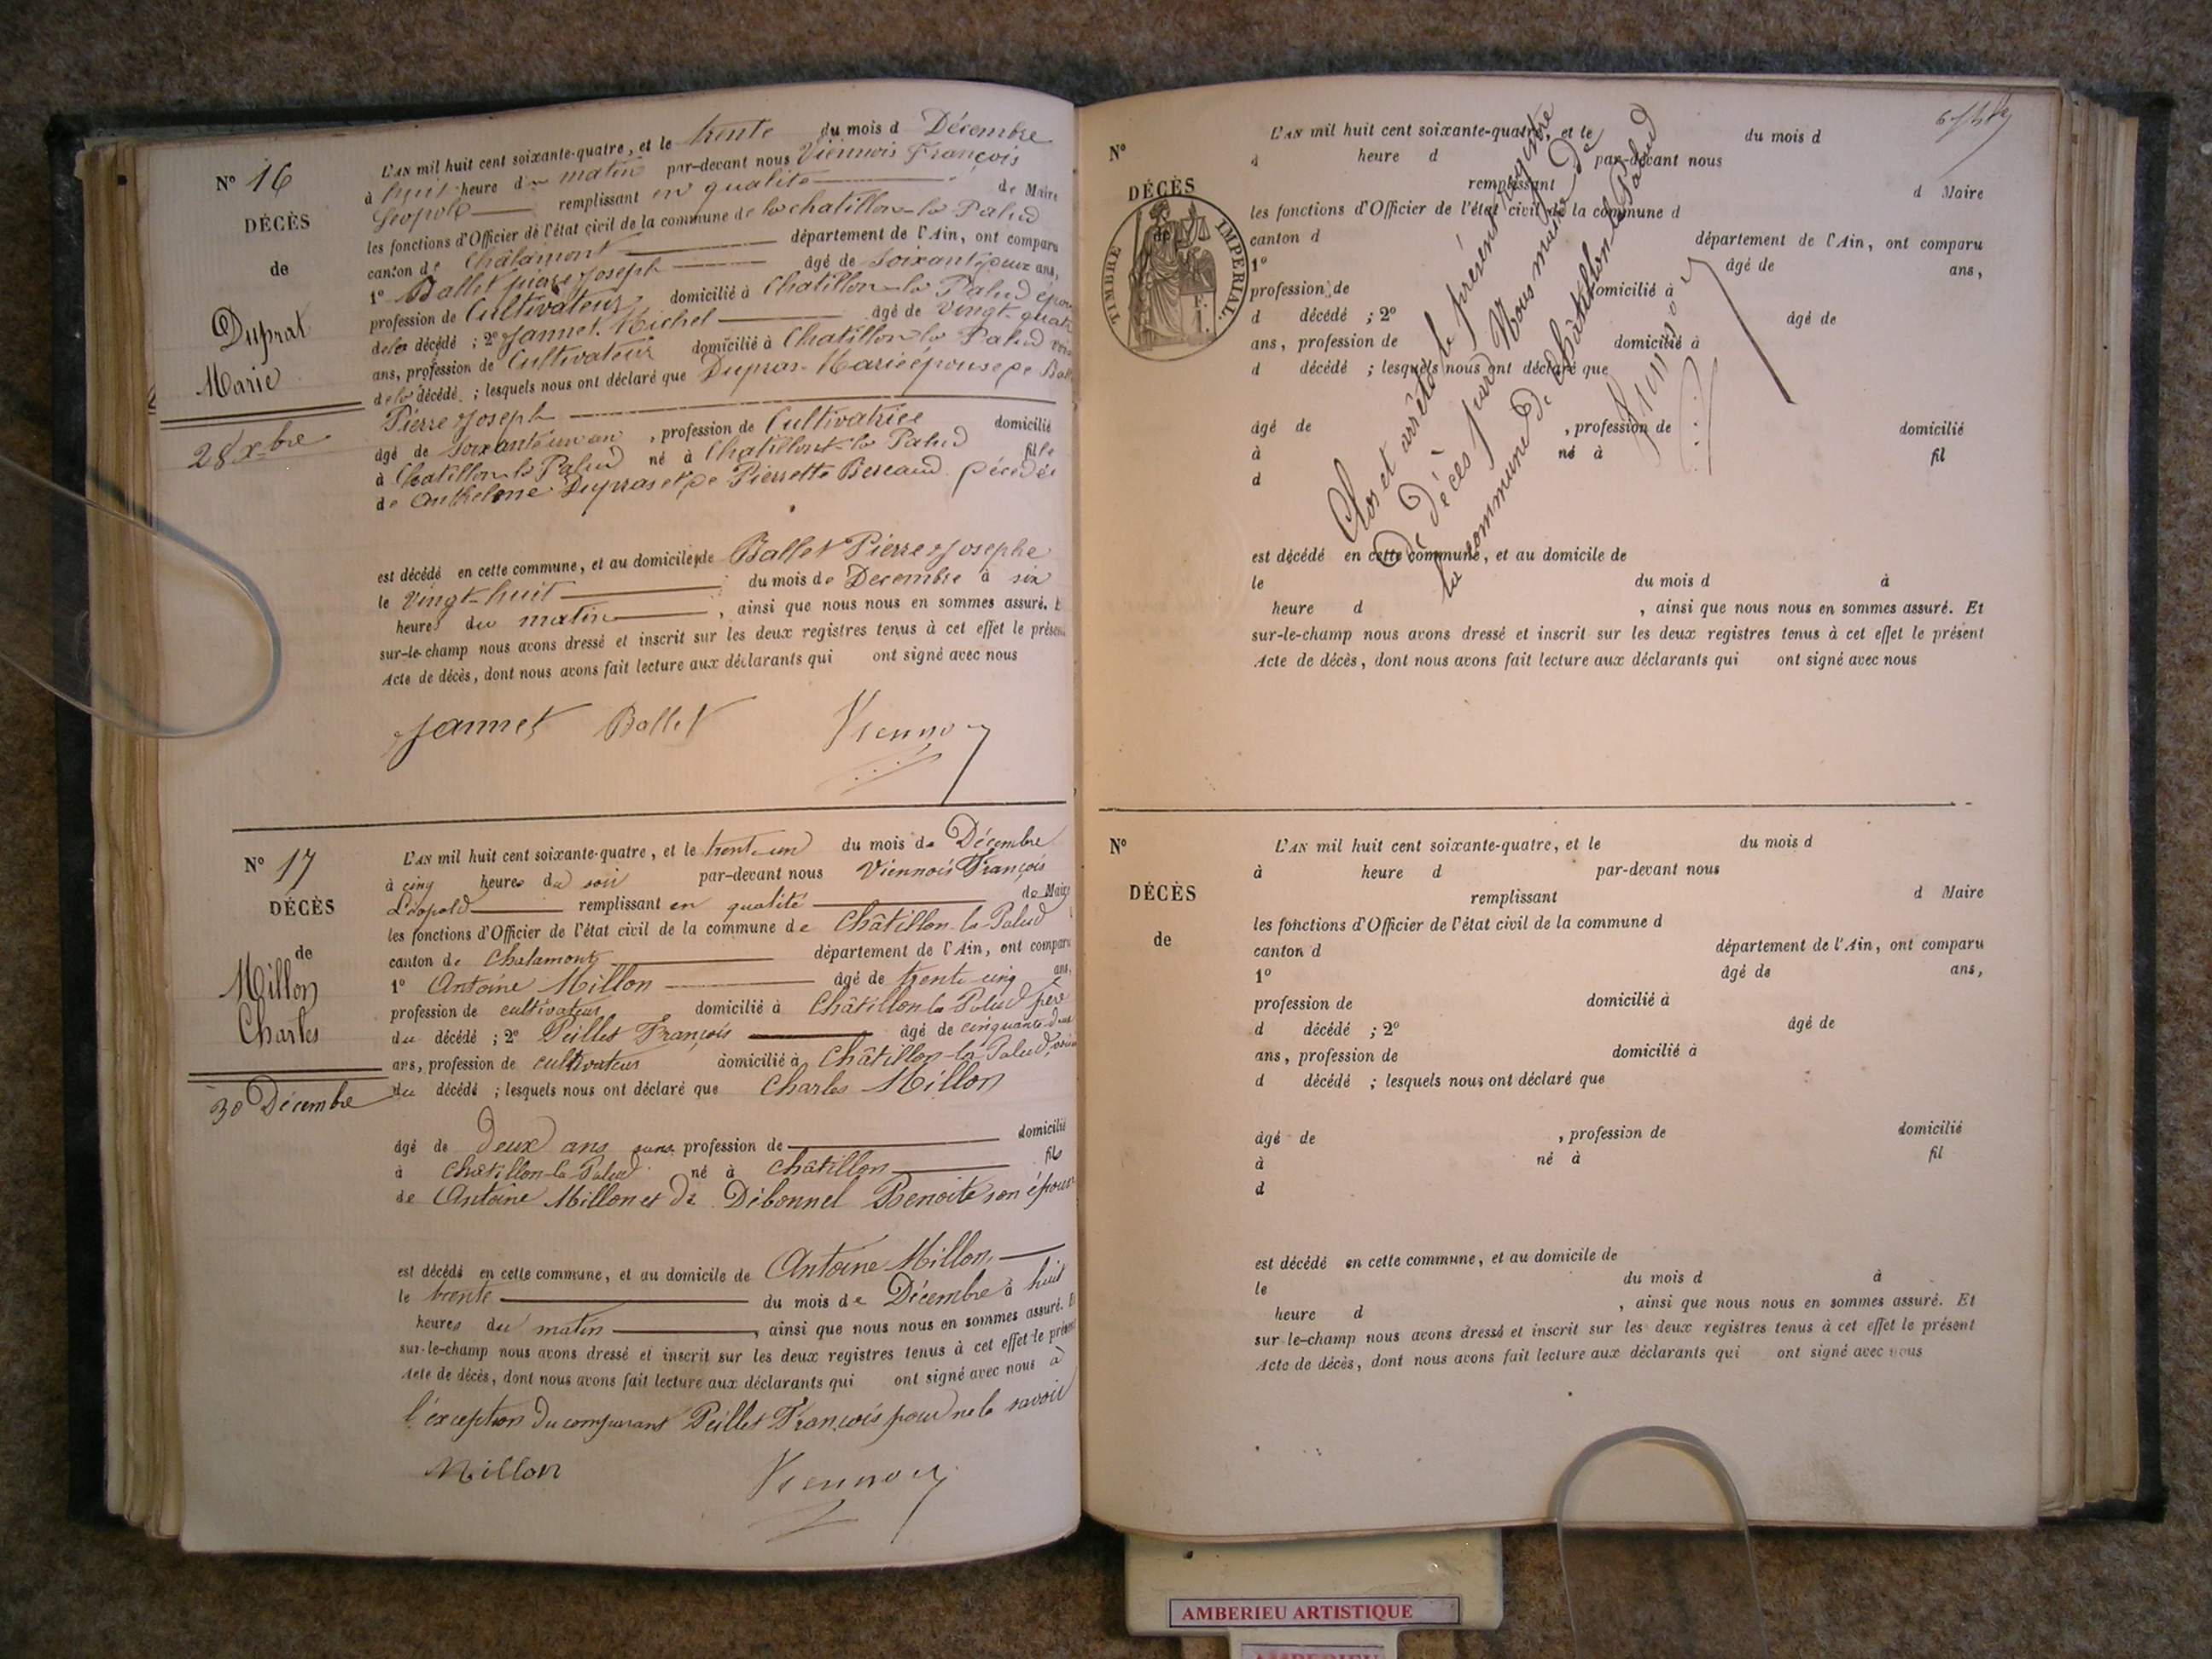 N° 16
DÉCÈS
de
Duprat
Marie
28 Xbre
L'AN mil huit cent soixante-quatre, et le trente du mois d Décembre
à huit heure du matin par-devant nous Viennois François
Léopold remplissant en qualité de Maire
les fonctions d'Officier de l'état civil de la commune de la chatillon-la Palud
canton de Châlamont département de l'Ain, ont comparu
1° Ballet pierre Joseph âgé de soixante deux ans,
profession de Cultivateur domicilié à Chatillon-la Palud époux
de la décédé ; 2° Jannet Michel âgé de vingt-quatre
ans, profession de Cultivateur domicilié à Chatillon la Palud voisin
de la décédé ; lesquels nous ont déclaré que Dupras Marie épouse de Ballet
Pierre Joseph
âgé de soixante un an , profession de Cultivatrice domicilié
à Chatillon la Palud né à Chatillon-la Palud fille
de Anthelme Dupras et de Pierrette Bereaud décédés
est décédé en cette commune, et au domicile de Ballet Pierre Josephe
le vingt-huit du mois de Decembre à six
heures du matin , ainsi que nous nous en sommes assuré. E
sur-le-champ nous avons dressé et inscrit sur les deux registres tenus à cet effet le présent
Acte de décès, dont nous avons fait lecture aux déclarants qui ont signé avec nous
Jannet Ballet Viennois
N° 17
DÉCÈS
de
Millon
Charles
30 Décembre
L'AN mil huit cent soixante-quatre, et le trente-un du mois de Décembre
à cinq heures du soir par-devant nous Viennois François
Léopold remplissant en qualité de Maire
les fonctions d'Officier de l'état civil de la commune de Châtillon-la-Palud
canton de Chalamont département de l'Ain, ont comparu
1° Antoine Millon âgé de trente-cinq ans,
profession de cultivateur domicilié à Châtillon-la-Palud père
du décédé ; 2° Peillet François âgé de cinquante-deux
ans, profession de cultivateur domicilié à Châtillon-la-Palud, voisin
du décédé ; lesquels nous ont déclaré que Charles Millon
âgé de deux ans sans profession de domicilié
à Châtillon-la-Palud né à Châtillon fils
de Antoine Millon et de Débonnel Benoite son épouse
est décédé en cette commune, et au domicile de Antoine Millon,
le trente du mois de Décembre à huit
heures du matin , ainsi que nous nous en sommes assuré. Et
sur-le-champ nous avons dressé et inscrit sur les deux registres tenus à cet effet le présent
Acte de décès, dont nous avons fait lecture aux déclarants qui ont signé avec nous à
l'exception du comparant Peillet François pour ne le savoir
Millon Viennois
N°
DÉCÈS
de
TIMBRE IMPERIAL.
L'AN mil huit cent soixante-quatre, et le du mois d
à heure d par-devant nous
remplissant d Maire
les fonctions d'Officier de l'état civil de la commune d
canton d département de l'Ain, ont comparu
1° âgé de ans,
profession de domicilié à
d décédé ; 2° âgé de
ans, profession de domicilié à
d décédé ; lesquels nous ont déclaré que
âgé de , profession de domicilié
à né à fil
d
est décédé en cette commune, et au domicile de
le du mois d à
heure d , ainsi que nous nous en sommes assuré. Et
sur-le-champ nous avons dressé et inscrit sur les deux registres tenus à cet effet le présent
Acte de décès, dont nous avons fait lecture aux déclarants qui ont signé avec nous
Clos et arrêté le présent registre
de Décès par Nous maire de
la commune de Châtillon la Palud
Viennois
N°
DÉCÈS
de
L'AN mil huit cent soixante-quatre, et le du mois d
à heure d par-devant nous
remplissant d Maire
les fonctions d'Officier de l'état civil de la commune d
canton d département de l'Ain, ont comparu
1° âgé de ans,
profession de domicilié à
d décédé ; 2° âgé de
ans, profession de domicilié à
d décédé ; lesquels nous ont déclaré que
âgé de , profession de domicilié
à né à fil
d
est décédé en cette commune, et au domicile de
le du mois d à
heure d , ainsi que nous nous en sommes assuré. Et
sur-le-champ nous avons dressé et inscrit sur les deux registres tenus à cet effet le présent
Acte de décès, dont nous avons fait lecture aux déclarants qui ont signé avec nous
AMBERIEU ARTISTIQUE
AMBERIEU